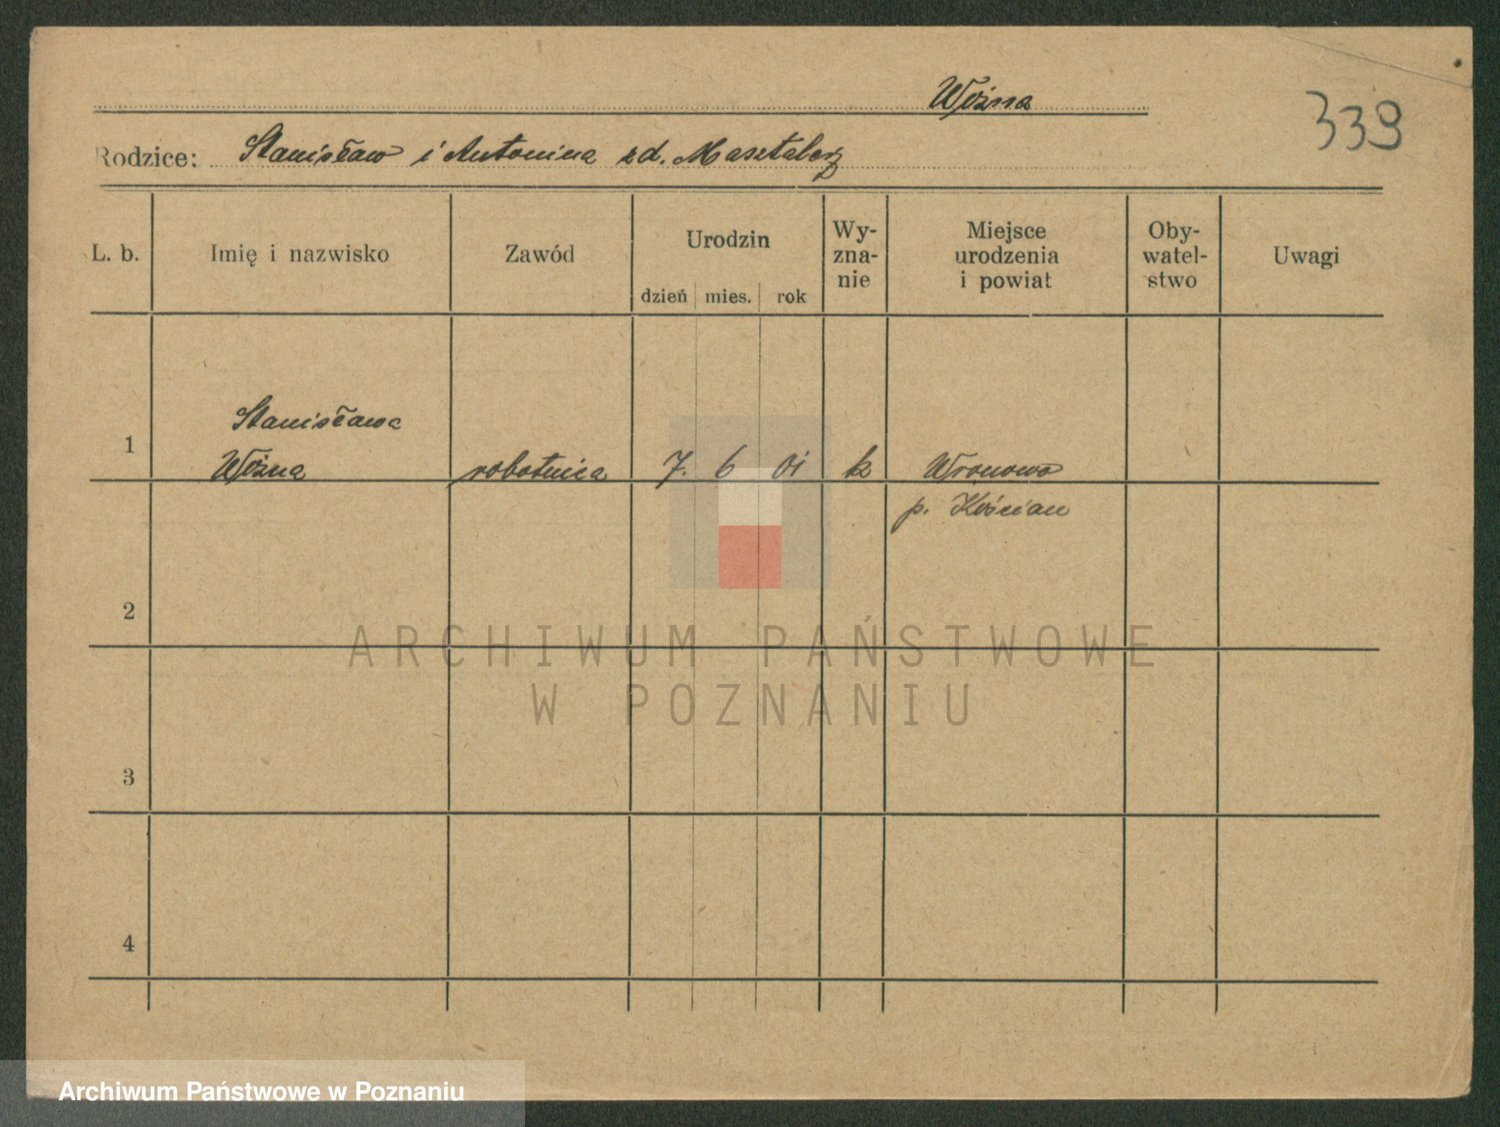 Woźna
339
Rodzice: Stanisław i Antonina zd. Masztalerz
L. b.
Imię i nazwisko
Zawód
Urodzin
dzień mies. rok
Wy-
zna-
nie
Miejsce
urodzenia
i powiat
Oby-
watel-
stwo
Uwagi
1
Stanisława
Woźna
robotnica
7. 6 01
k
Wronowo
p. Kościan
2
3
4
ARCHIWUM PAŃSTWOWE
W POZNANIU
Archiwum Państwowe w Poznaniu